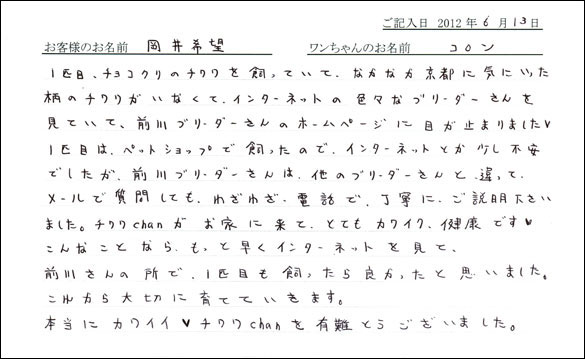 ご記入日 2012年6月13日
お客様のお名前 岡井希望 ワンちゃんのお名前 コロン
1匹目、チョコクリのチワワを飼っていて、なかなか京都に気にいった
柄のチワワがいなくて、インターネットの色々なブリーダーさんを
見ていて、前川ブリーダーさんのホームページに目が止まりました♥
1匹目は、ペットショップで飼ったので、インターネットとか少し不安
でしたが、前川ブリーダーさんは、他のブリーダーさんと違って、
メールで質問しても、わざわざ、電話で、丁寧に、ご説明下さい
ました。チワワchanがお家に来て、とてもカワイク、健康です♥
こんなことなら、もっと早くインターネットを見て、
前川さんの所で、1匹目も飼ったら良かったと思いました。
これから大切に育てていきます。
本当にカワイイ♥チワワchanを有難とうございました。